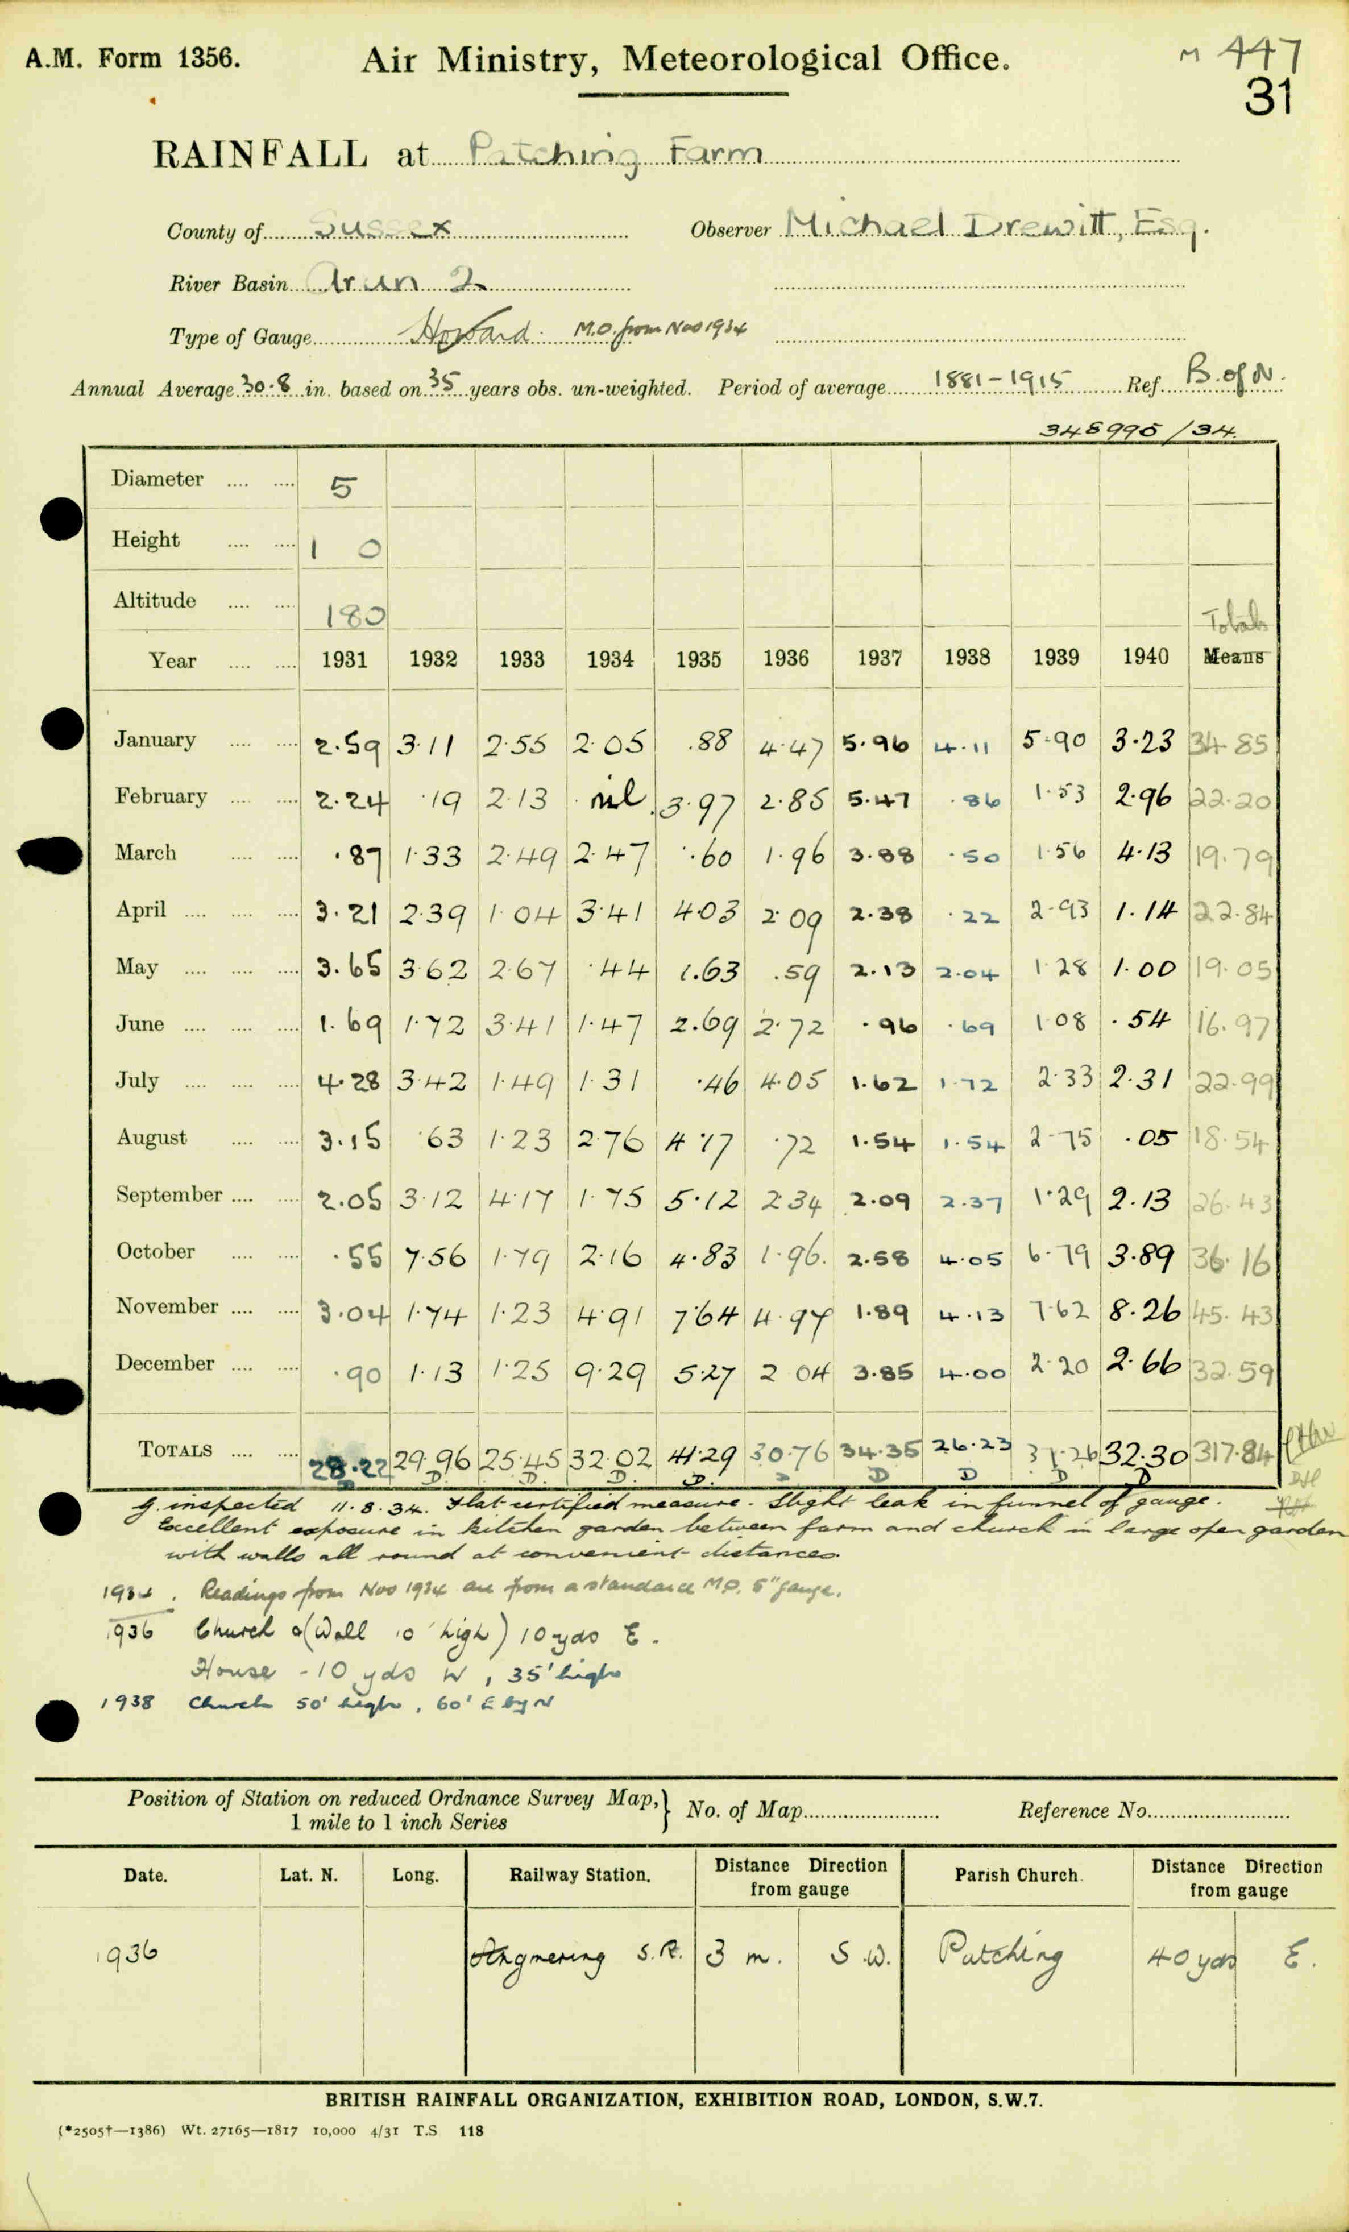 A.M. Form 1356. Air Ministry, Meteorological Office. M 447
31
RAINFALL at Patching Farm
County of Sussex Observer Michael Drewitt, Esq.
River Basin Arun 2
Type of Gauge Howard. M.O. from Nov 1934
Annual Average 30.8 in. based on 35 years obs. un-weighted. Period of average 1881-1915 Ref. B. of N.
348995/34.
Diameter 5
Height 1 0
Altitude 180
Totals
Year 1931 1932 1933 1934 1935 1936 1937 1938 1939 1940 Means
January 2.59 3.11 2.55 2.05 .88 4.47 5.96 4.11 5.90 3.23 34.85
February 2.24 .19 2.13 nil 3.97 2.85 5.47 .86 1.53 2.96 22.20
March .87 1.33 2.49 2.47 .60 1.96 3.88 .50 1.56 4.13 19.79
April 3.21 2.39 1.04 3.41 4.03 2.09 2.38 .22 2.93 1.14 22.84
May 3.65 3.62 2.67 .44 1.63 .59 2.13 2.04 1.28 1.00 19.05
June 1.69 1.72 3.41 1.47 2.69 2.72 .96 .69 1.08 .54 16.97
July 4.28 3.42 1.49 1.31 .46 4.05 1.62 1.72 2.33 2.31 22.99
August 3.15 .63 1.23 2.76 4.17 .72 1.54 1.54 2.75 .05 18.54
September 2.05 3.12 4.17 1.75 5.12 2.34 2.09 2.37 1.29 2.13 26.43
October .55 7.56 1.79 2.16 4.83 1.96 2.58 4.05 6.79 3.89 36.16
November 3.04 1.74 1.23 4.91 7.64 4.97 1.89 4.13 7.62 8.26 45.43
December .90 1.13 1.25 9.29 5.27 2.04 3.85 4.00 2.20 2.66 32.59
TOTALS 28.22 29.96 25.45 32.02 41.29 30.76 34.35 26.23 37.26 32.30 317.84
D D. D. D. D. D D D D D
g. inspected 11.8.34. Flat certified measure. Slight leak in funnel of gauge.
Excellent exposure in kitchen garden between farm and church in large open garden
with walls all round at convenient distances.
1934. Readings from Nov 1934 are from a standard M.O. 5" gauge.
1936 Church & (Wall 10' high) 10 yds E.
House - 10 yds W, 35' high
1938 Church 50' high, 60' E by N
Position of Station on reduced Ordnance Survey Map,} No. of Map Reference No.
1 mile to 1 inch Series
Date. Lat. N. Long. Railway Station. Distance Direction from gauge Parish Church. Distance Direction from gauge
1936 Angmering S.R. 3 m. S.W. Patching 40 yds E.
BRITISH RAINFALL ORGANIZATION, EXHIBITION ROAD, LONDON, S.W.7.
(*2505†—1386) Wt. 27165—1817 10,000 4/31 T.S 118